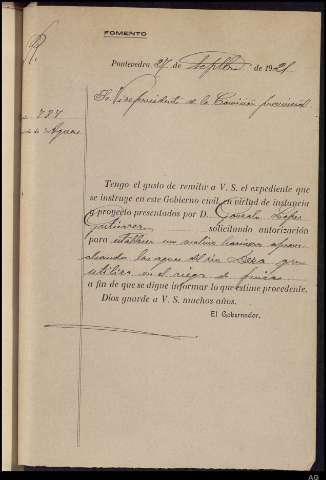 FOMENTO
Pontevedra 27 de Septbre de 1921
Sr. Vicepresidente de la Comisión provincial
727
Aguas
Tengo el gusto de remitir a V. S. el expediente que
se instruye en este Gobierno civil en virtud de instancia
y proyecto presentados por D. Gonzalo López
Gutiérrez solicitando autorización
para establecer un molino harinero aprove-
chando las aguas del río Deza que
utiliza en el riego de fincas
a fin de que se digne informar lo que estime procedente.
Dios guarde a V. S. muchos años.
El Gobernador,
AG